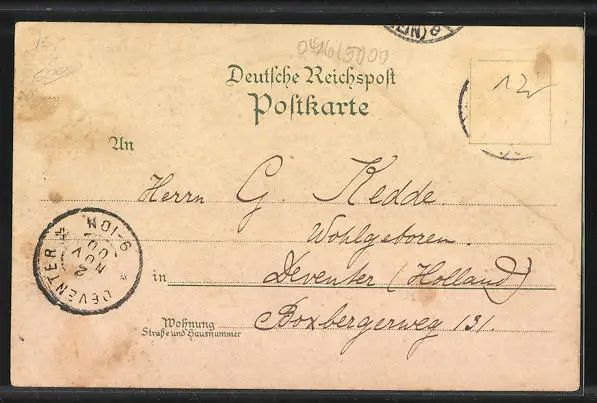 Deutsche Reichspost
Postkarte
An
Herrn G. Kedde.
Wohlgeboren.
in Deventer (Holland)
Wohnung Boxbergerweg 131.
Straße und Hausnummer
DEVENTER
9-10N
2 NOV